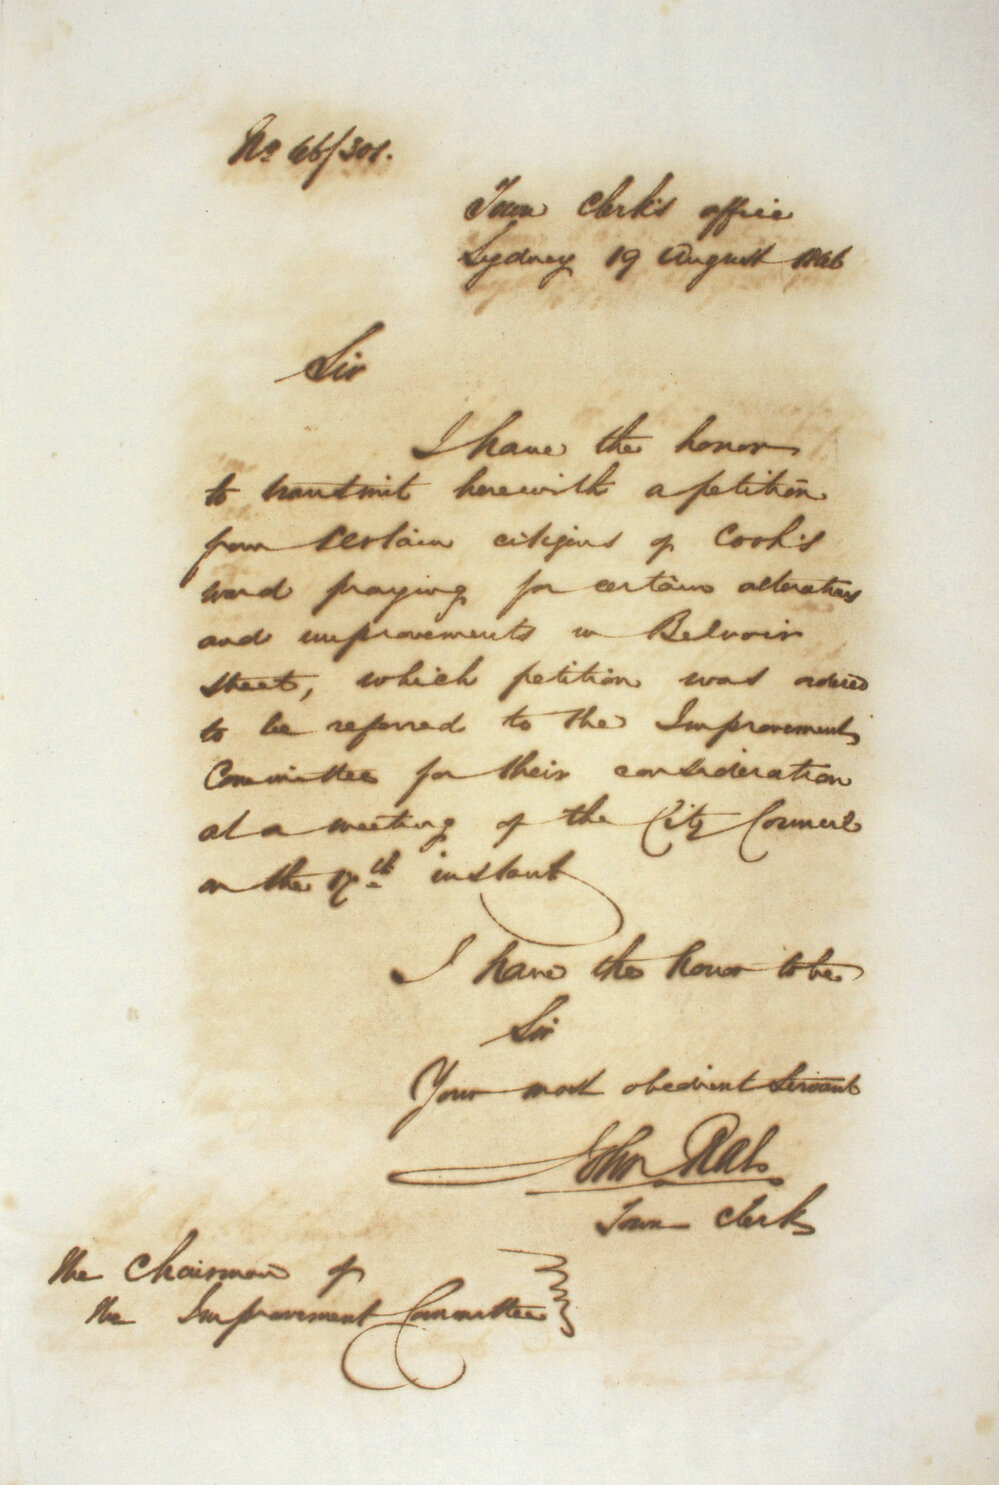 No 46/301.
Town Clerk's office
Sydney 19 August 1846
Sir
I have the honor
to transmit herewith a petition
from certain citizens of Cook's
ward praying for certain alterations
and improvements in Belvoir
street, which petition was ordered
to be referred to the Improvement
Committee for their consideration
at a meeting of the City Council
on the 17th instant
I have the honor to be
Sir
Your most obedient Servant
John Rae
Town Clerk
The Chairman of
the Improvement Committee